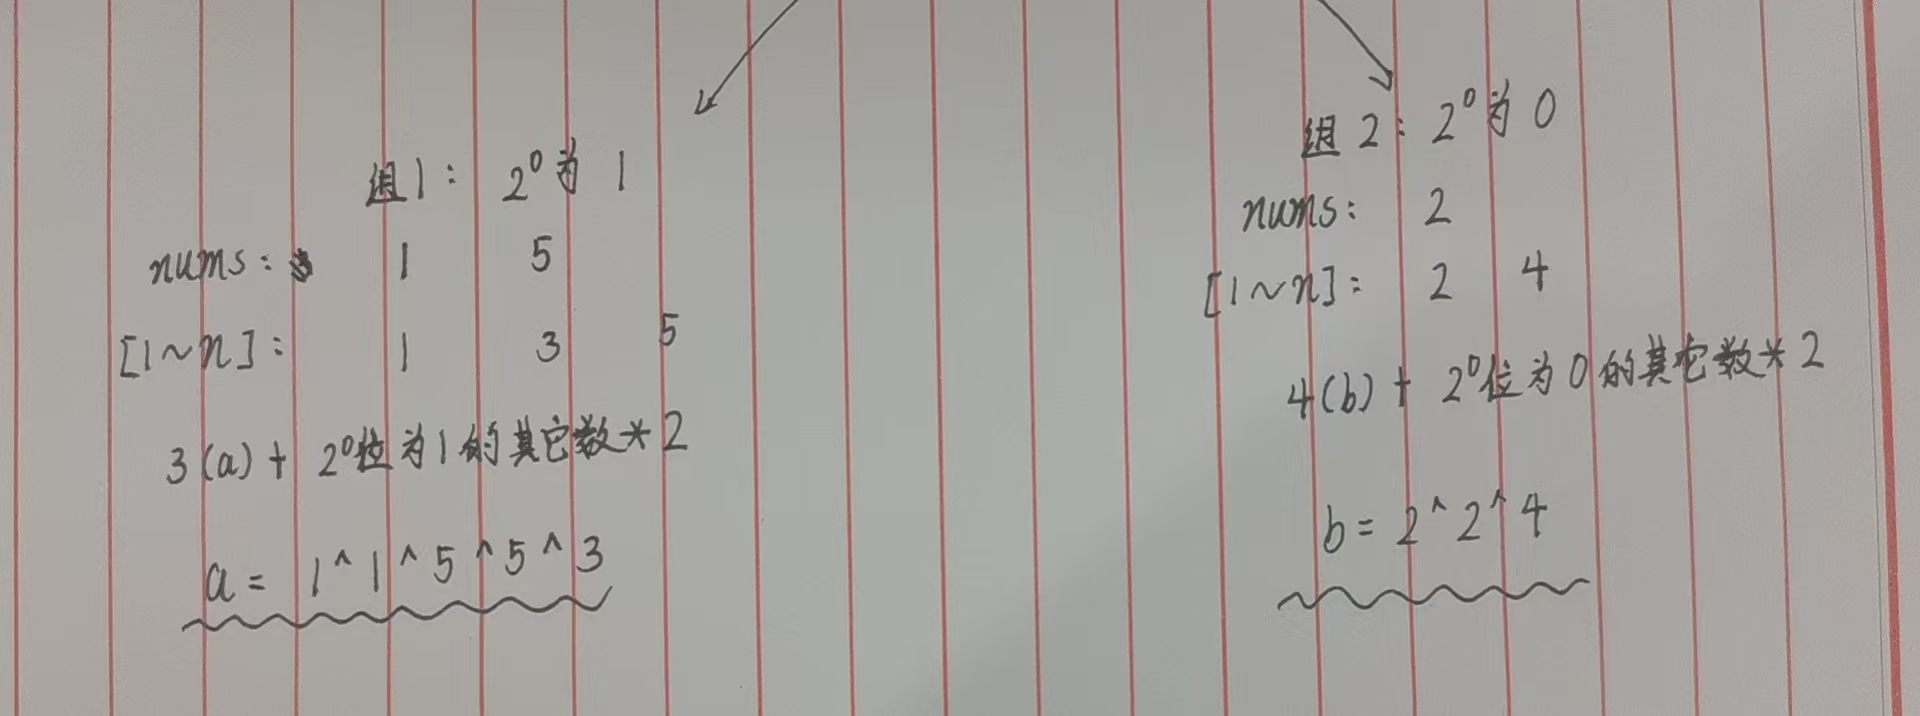 组1: 2⁰为 1
nums: 1 5
[1~n]: 1 3 5
3(a) + 2⁰位为1的其它数*2
a = 1^1^5^5^3
组2: 2⁰为 0
nums: 2
[1~n]: 2 4
4(b) + 2⁰位为0的其它数*2
b = 2^2^4